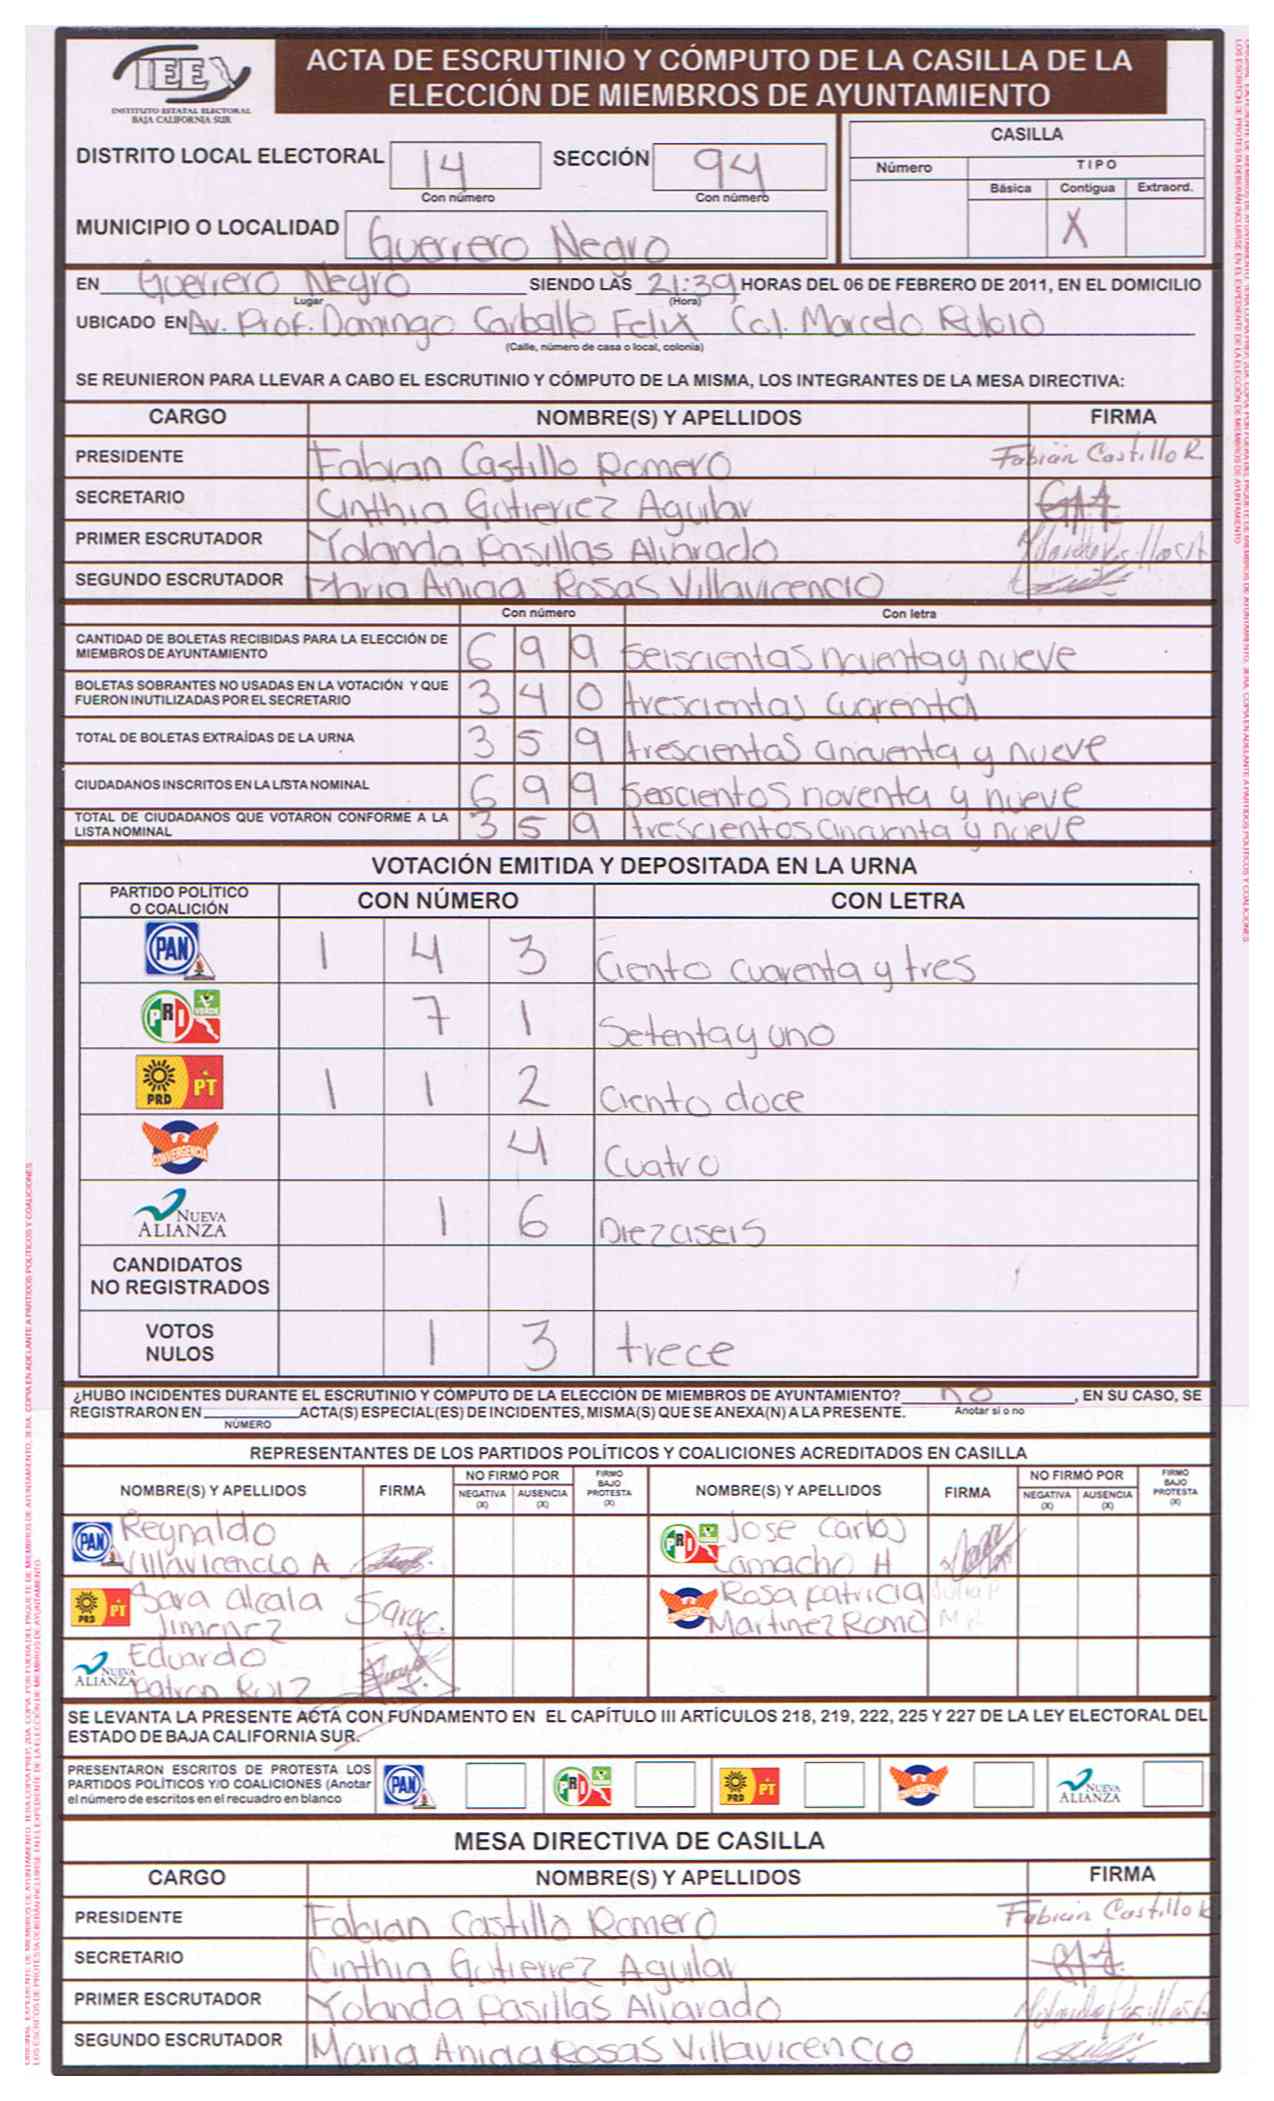 IEE
INSTITUTO ESTATAL ELECTORAL
BAJA CALIFORNIA SUR
ACTA DE ESCRUTINIO Y CÓMPUTO DE LA CASILLA DE LA
ELECCIÓN DE MIEMBROS DE AYUNTAMIENTO
DISTRITO LOCAL ELECTORAL 14 SECCIÓN 94
Con número Con número
MUNICIPIO O LOCALIDAD Guerrero Negro
CASILLA
Número TIPO
Básica Contigua Extraord.
X
EN Guerrero Negro SIENDO LAS 21:39 HORAS DEL 06 DE FEBRERO DE 2011, EN EL DOMICILIO
Lugar (Hora)
UBICADO EN Av. Prof. Domingo Carballo Felix Col. Marcelo Rubio
(Calle, número de casa o local, colonia)
SE REUNIERON PARA LLEVAR A CABO EL ESCRUTINIO Y CÓMPUTO DE LA MISMA, LOS INTEGRANTES DE LA MESA DIRECTIVA:
CARGO NOMBRE(S) Y APELLIDOS FIRMA
PRESIDENTE Fabian Castillo Romero Fabián Castillo R.
SECRETARIO Cinthia Gutierrez Aguilar
PRIMER ESCRUTADOR Yolanda Pasillas Alvarado
SEGUNDO ESCRUTADOR Maria Rosas Villavicencio
Con número Con letra
CANTIDAD DE BOLETAS RECIBIDAS PARA LA ELECCIÓN DE
MIEMBROS DE AYUNTAMIENTO 6 9 9 Seiscientas noventa y nueve
BOLETAS SOBRANTES NO USADAS EN LA VOTACIÓN Y QUE
FUERON INUTILIZADAS POR EL SECRETARIO 3 4 0 trescientas cuarenta
TOTAL DE BOLETAS EXTRAÍDAS DE LA URNA 3 5 9 trescientas cincuenta y nueve
CIUDADANOS INSCRITOS EN LA LISTA NOMINAL 6 9 9 Seiscientos noventa y nueve
TOTAL DE CIUDADANOS QUE VOTARON CONFORME A LA
LISTA NOMINAL 3 5 9 trescientos cincuenta y nueve
VOTACIÓN EMITIDA Y DEPOSITADA EN LA URNA
PARTIDO POLÍTICO
O COALICIÓN CON NÚMERO CON LETRA
PAN 1 4 3 Ciento cuarenta y tres
PRI VERDE 7 1 Setenta y uno
PRD PT 1 1 2 Ciento doce
CONVERGENCIA 4 Cuatro
NUEVA ALIANZA 1 6 Diezciseis
CANDIDATOS
NO REGISTRADOS
VOTOS
NULOS 1 3 trece
¿HUBO INCIDENTES DURANTE EL ESCRUTINIO Y CÓMPUTO DE LA ELECCIÓN DE MIEMBROS DE AYUNTAMIENTO? no , EN SU CASO, SE
REGISTRARON EN ACTA(S) ESPECIAL(ES) DE INCIDENTES, MISMA(S) QUE SE ANEXA(N) A LA PRESENTE. Anotar si o no
NÚMERO
REPRESENTANTES DE LOS PARTIDOS POLÍTICOS Y COALICIONES ACREDITADOS EN CASILLA
NOMBRE(S) Y APELLIDOS FIRMA NO FIRMÓ POR NEGATIVA (X) AUSENCIA (X) FIRMÓ BAJO PROTESTA (X) NOMBRE(S) Y APELLIDOS FIRMA NO FIRMÓ POR NEGATIVA (X) AUSENCIA (X) FIRMÓ BAJO PROTESTA (X)
PAN Reynaldo Villavicencio A PRI Jose Carlos Camacho H
PRD PT Sara alcala Jimenez Sarac. CONVERGENCIA Rosa patricia Martinez Romo
NUEVA ALIANZA Eduardo Patron Ruiz
SE LEVANTA LA PRESENTE ACTA CON FUNDAMENTO EN EL CAPÍTULO III ARTÍCULOS 218, 219, 222, 225 Y 227 DE LA LEY ELECTORAL DEL
ESTADO DE BAJA CALIFORNIA SUR.
PRESENTARON ESCRITOS DE PROTESTA LOS
PARTIDOS POLÍTICOS Y/O COALICIONES (Anotar
el número de escritos en el recuadro en blanco
PAN PRI PRD PT CONVERGENCIA NUEVA ALIANZA
MESA DIRECTIVA DE CASILLA
CARGO NOMBRE(S) Y APELLIDOS FIRMA
PRESIDENTE Fabian Castillo Romero Fabián Castillo R
SECRETARIO Cinthia Gutierrez Aguilar
PRIMER ESCRUTADOR Yolanda Pasillas Alvarado
SEGUNDO ESCRUTADOR Maria Rosas Villavicencio